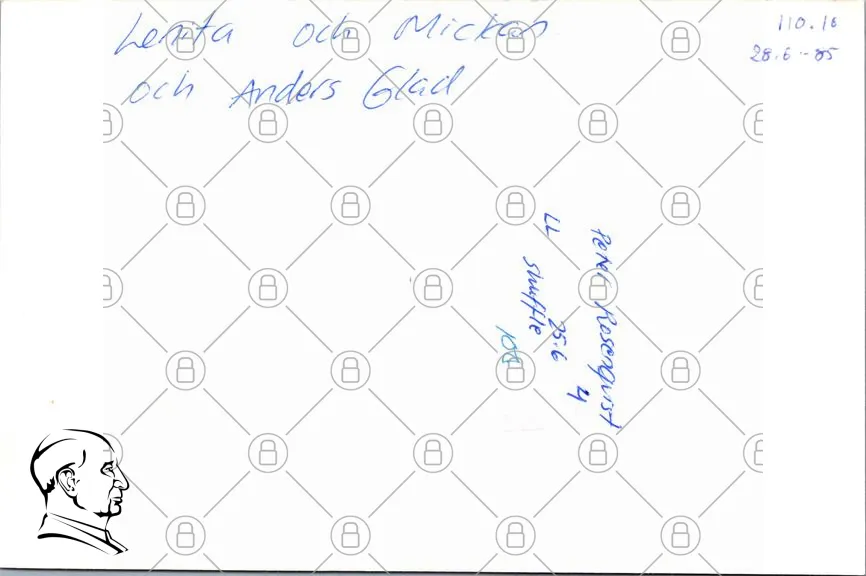 Lenita och Mickan
och Anders Glad
110.16
28.6-85
Peter Rosenqvist
LL 25.6 4
shuffle
100